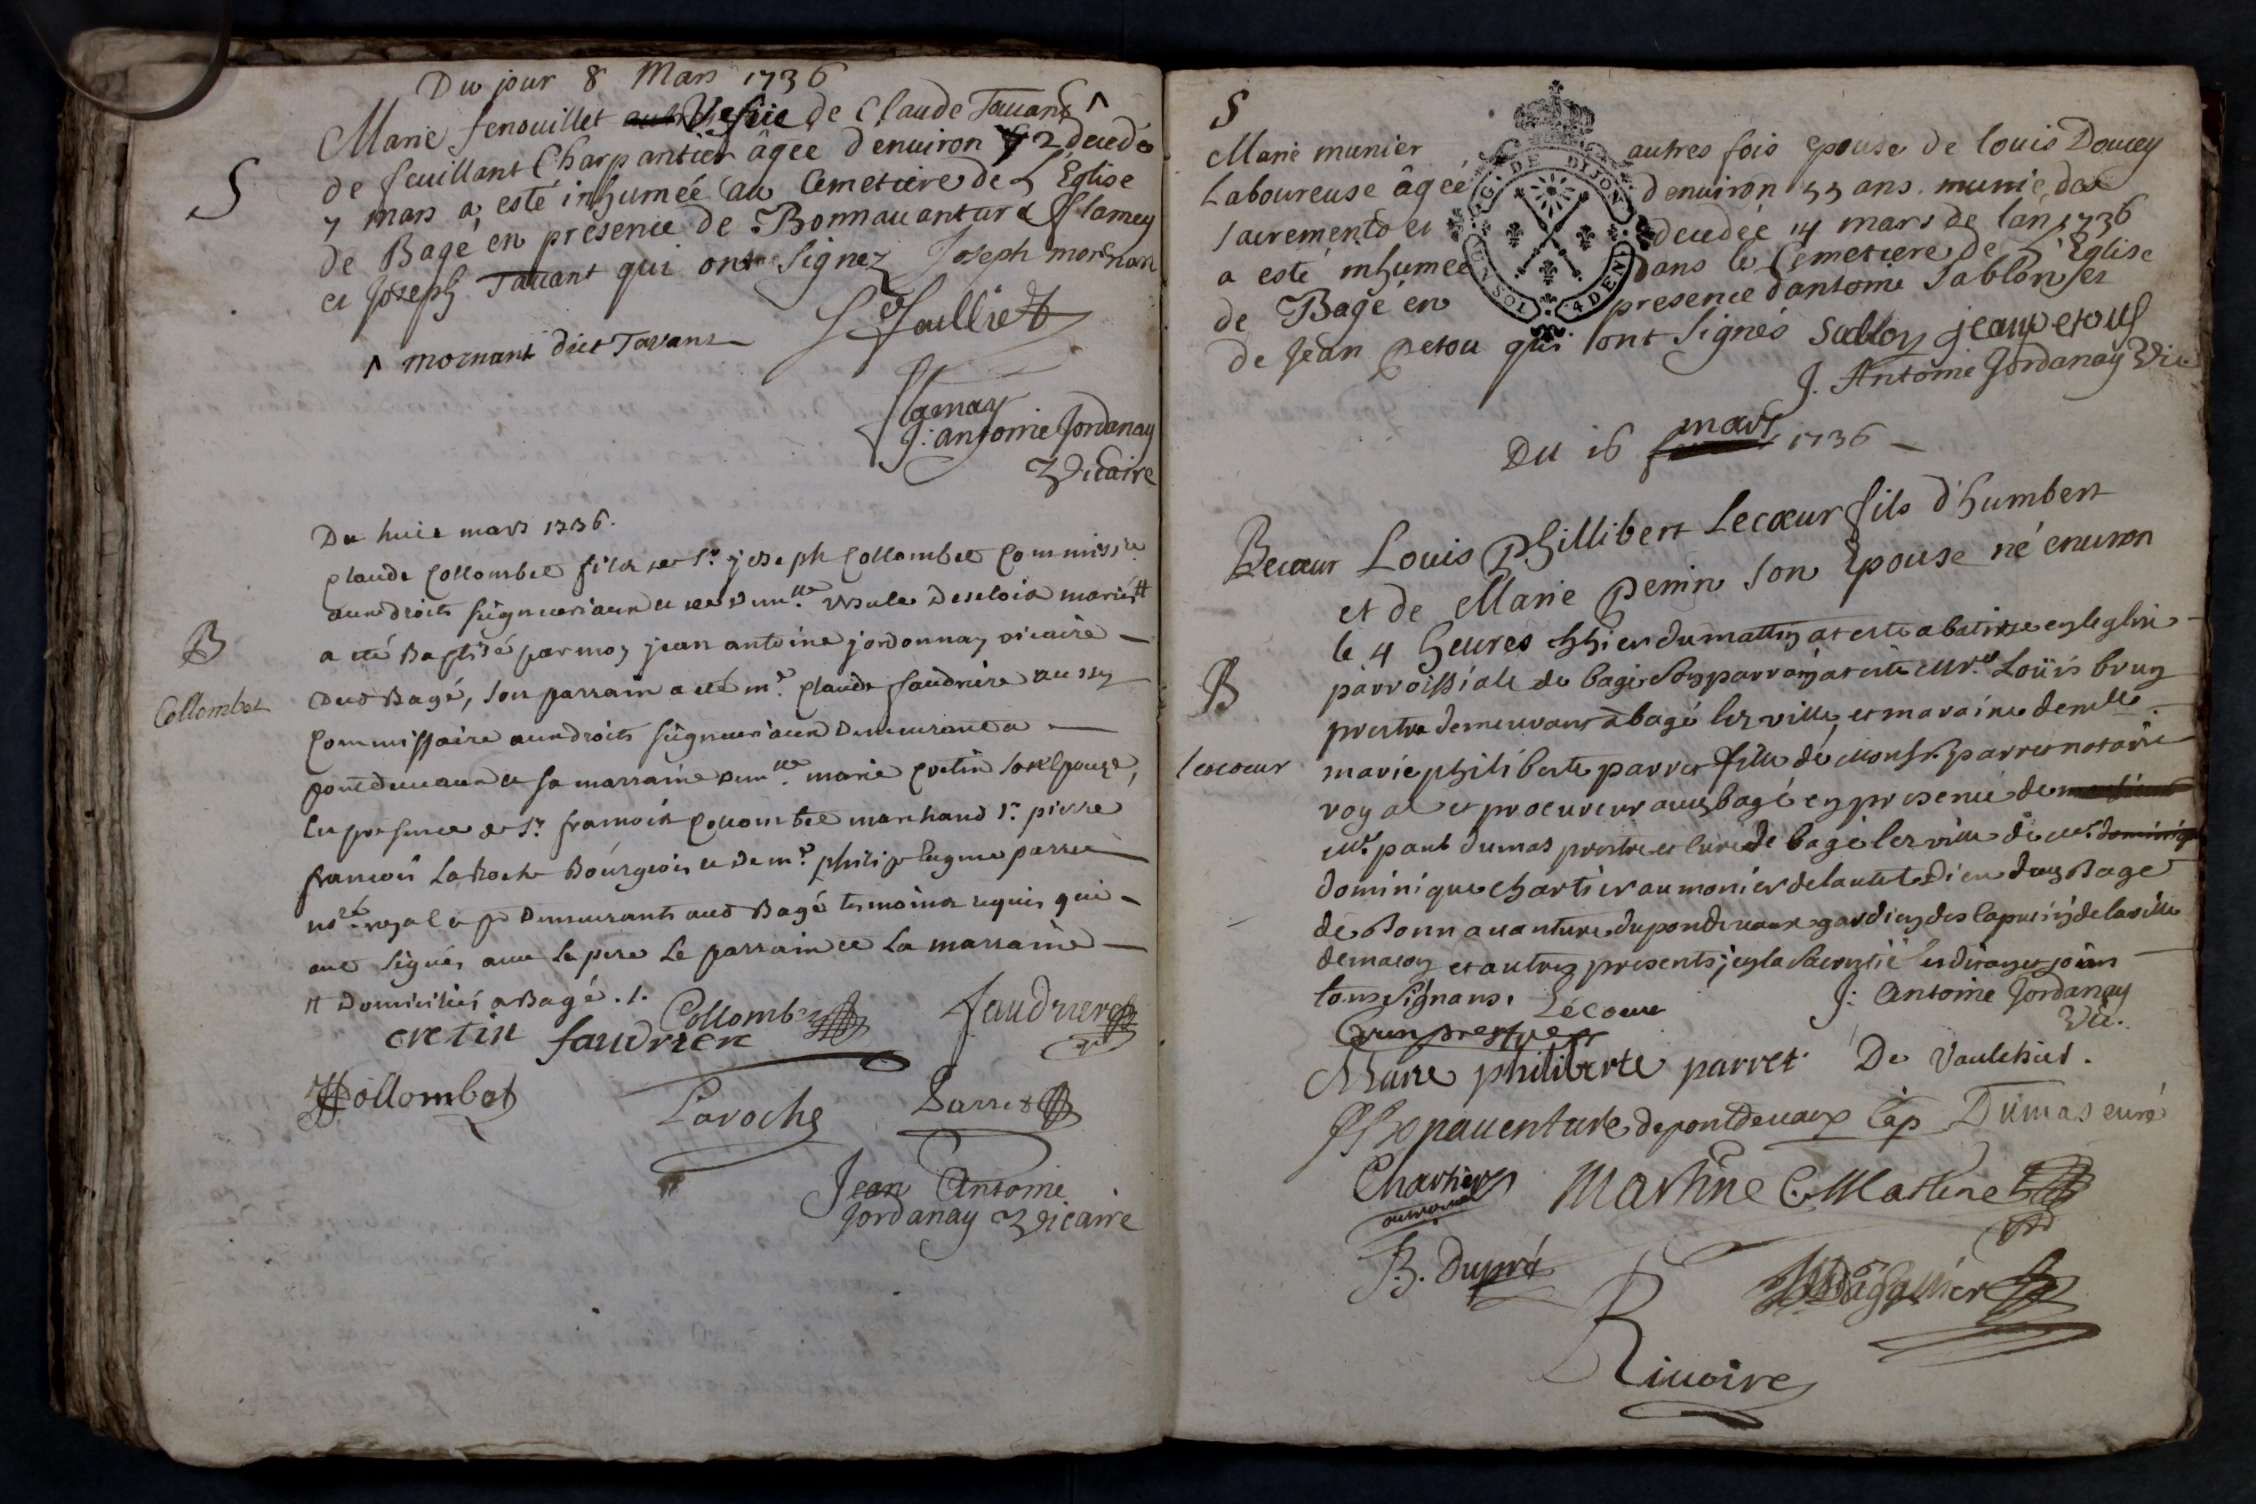 Du jour 8 Mars 1736
Marie fenouillet Vefve de Claude Tavant ^
de feuillant Charpantier âgée d'environ 72 decedée
S
7 mars a esté inhumée au Cemetiere de L'Eglise
de Bagé en presence de Bonnavanture flamey
et Joseph Tavant qui ont signez Joseph mornan
^ mornant dict Tavant
flamay
J: antoine Jordanay
Vicaire
Du huit mars 1736.
Claude Collombet fils de Sr. joseph Collombet Commissre.
aux droits seigneuriaux et de Demlle. Ursule Desclois mariés #
B
a été Baptisé par moy jean antoine jordonnay vicaire
Collombet
dud Bagé, son parrain a été mr. Claude faudrier aussy
Commissaire aux droits seigneuriaux Demeurant a
pontdevaux et sa marraine demlle. marie Cretin son Epouze,
En presence de Sr. francois Collombet marchand Sr. pierre
francois LaRoche Bourgeois et de mr. philipe parret
nore. royal et pr Demeurants aud Bagé tesmoins requis qui
ont signés avec le pere le parrain et La marraine
# Domiciliés a Bagé ./.
Collombet faudrier
cretin faudrier
Collombet Laroche Parret
Jean Antoine
Jordanay Vicaire
S
Marie munier autres fois epouse de louis Doucey
Laboureuse âgée d'environ 55 ans munie des
G. DE DIJON
4 DEN
sacrements et decedée 14 mars de lan 1736
a esté inhumée dans le Cemetiere de L'Eglise
de Bagé en presence d'antoine Sablon et
de Jean Petou qui ont signés Sablon jean petou
J. Antoine Jordanay Vic
Du 16 mars 1736
Lecœur Louis Phillibert Lecœur fils d'humbert
et de Marie Penin son Epouse né environ
le 4 heures hier du mattin at esté abatisé en leglise
B
parroissiale de bagé son parrain at esté Mre. Loüis brun
prestre demeurant a bagé lez ville, et maraine demlle.
lecoeur
marie philiberte parret fille de Monsr. parret notaire
royal et procureur aud bagé en presence de
Mr. paul dumas prestre et curé de bagé lez ville de Mr.
dominique chartier aumonier de lautel Dieu dud Bagé
de Bonnavanture du pondevaux gardien des capucin de la ville
de macon et autres presents
tous signans. Lécoeur J: Antoine Jordanay
Vic.
Brun prestre
Marie philiberte parret De Vaulchier.
f Bonaventure de pontdevaux Cap Dumas curé
Chartier
aumonier
Martine C. Martine
B. Dupré
Rivoire